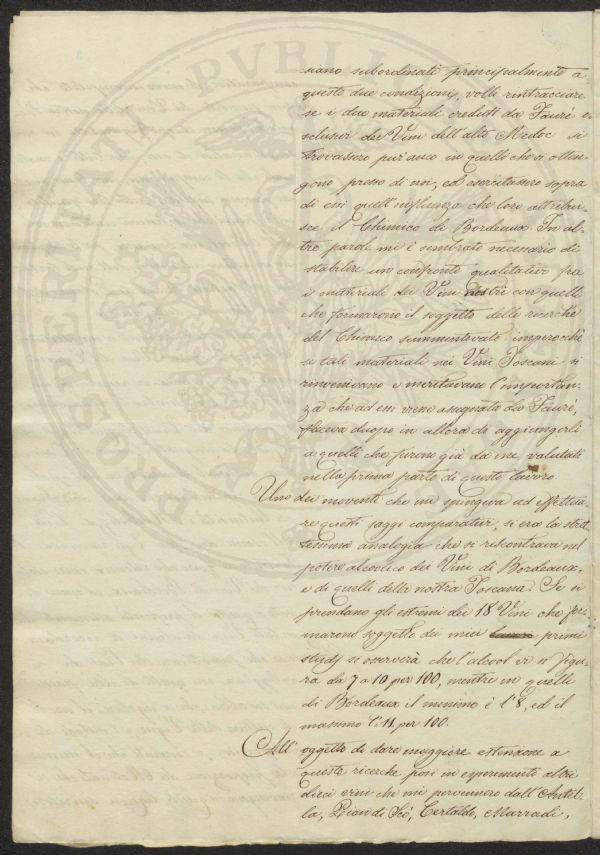 siano subordinati principalmente a
queste due condizioni, volli rintracciare
se i due materiali creduti da Fauré e-
sclusivi dei Vini dell'alto Medoc si
trovassero pur'anco in quelli che si otten-
gono presso di noi, ed esercitassero sopra
di essi quell'influenza che loro attribui-
sce il Chimico di Bordeaux. In al-
tre parole mi è sembrato necessario di
stabilire un confronto qualitativo fra
i materiali dei Vini nostri con quelli
che formarono il soggetto delle ricerche
del Chimico summentovato imperocchè
se tali materiali nei Vini Toscani si
rinvenivano e meritavano l'importan-
za che ad essi viene assegnata da Fauré,
faceva duopo in allora di aggiungerli
a quelli che furono già da me valutati
nella prima parte di questo lavoro.
Uno dei moventi che mi spingeva ad effettua-
re questi saggi comparativi, si era la stret-
tissima analogia che si riscontrava nel
potere alcoolico dei Vini di Bordeaux,
e di quelli della nostra Toscana. Se si
prendano gli estremi dei 18 Vini che for-
marono soggetto dei miei primi
studj si osserverà che l'alcool vi si figu-
ra da 7 a 10 per 100, mentre in quelli
di Bordeaux il minimo è l'8, ed il
massimo l'11 per 100.
All'oggetto di dare maggiore estensione a
queste ricerche posi in esperimento altri
dieci vini che mi pervennero dall'Antel-
la, Pian di Scò, Certaldo, Marradi,
PROSPERITATI PVBLI